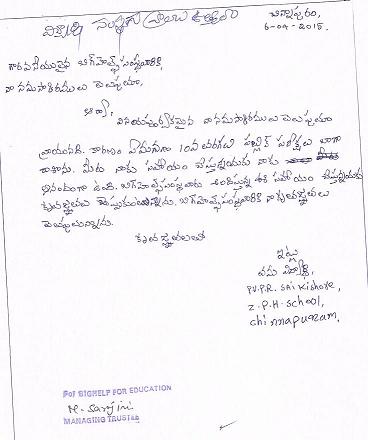 విద్యార్థి సంస్థకు వ్రాయు ఉత్తరం
చిన్నాపురం,
6-04-2015.
గౌరవనీయులైన బిగ్‌హెల్ప్ సంస్థవారికి
నా నమస్కారములు తెలుపుతూ,
ఆర్యా,
వినయపూర్వకమైన నా నమస్కారములు తెలుపుతూ
వ్రాయునది. కారణం ఏమనగా 10వ తరగతి పబ్లిక్ పరీక్షలు బాగా
రాశాను. మీరు నాకు సహాయం చేస్తున్నందుకు నాకు
ఆనందంగా ఉంది. బిగ్‌హెల్ప్ సంస్థవారు అందిస్తున్న ఈ సహాయం చేస్తున్నందుకు
కృతజ్ఞతలు చెప్పుకుంటున్నాను. బిగ్‌హెల్ప్ సంస్థవారికి నా కృతజ్ఞతలు
తెలుపుతున్నాను.
కృతజ్ఞతలతో
ఇట్లు
తమ విద్యార్థి,
P.V.P.R. Sai Kishore,
Z.P.H-School,
Chinnapuram.
For BIGHELP FOR EDUCATION
MANAGING TRUSTEE